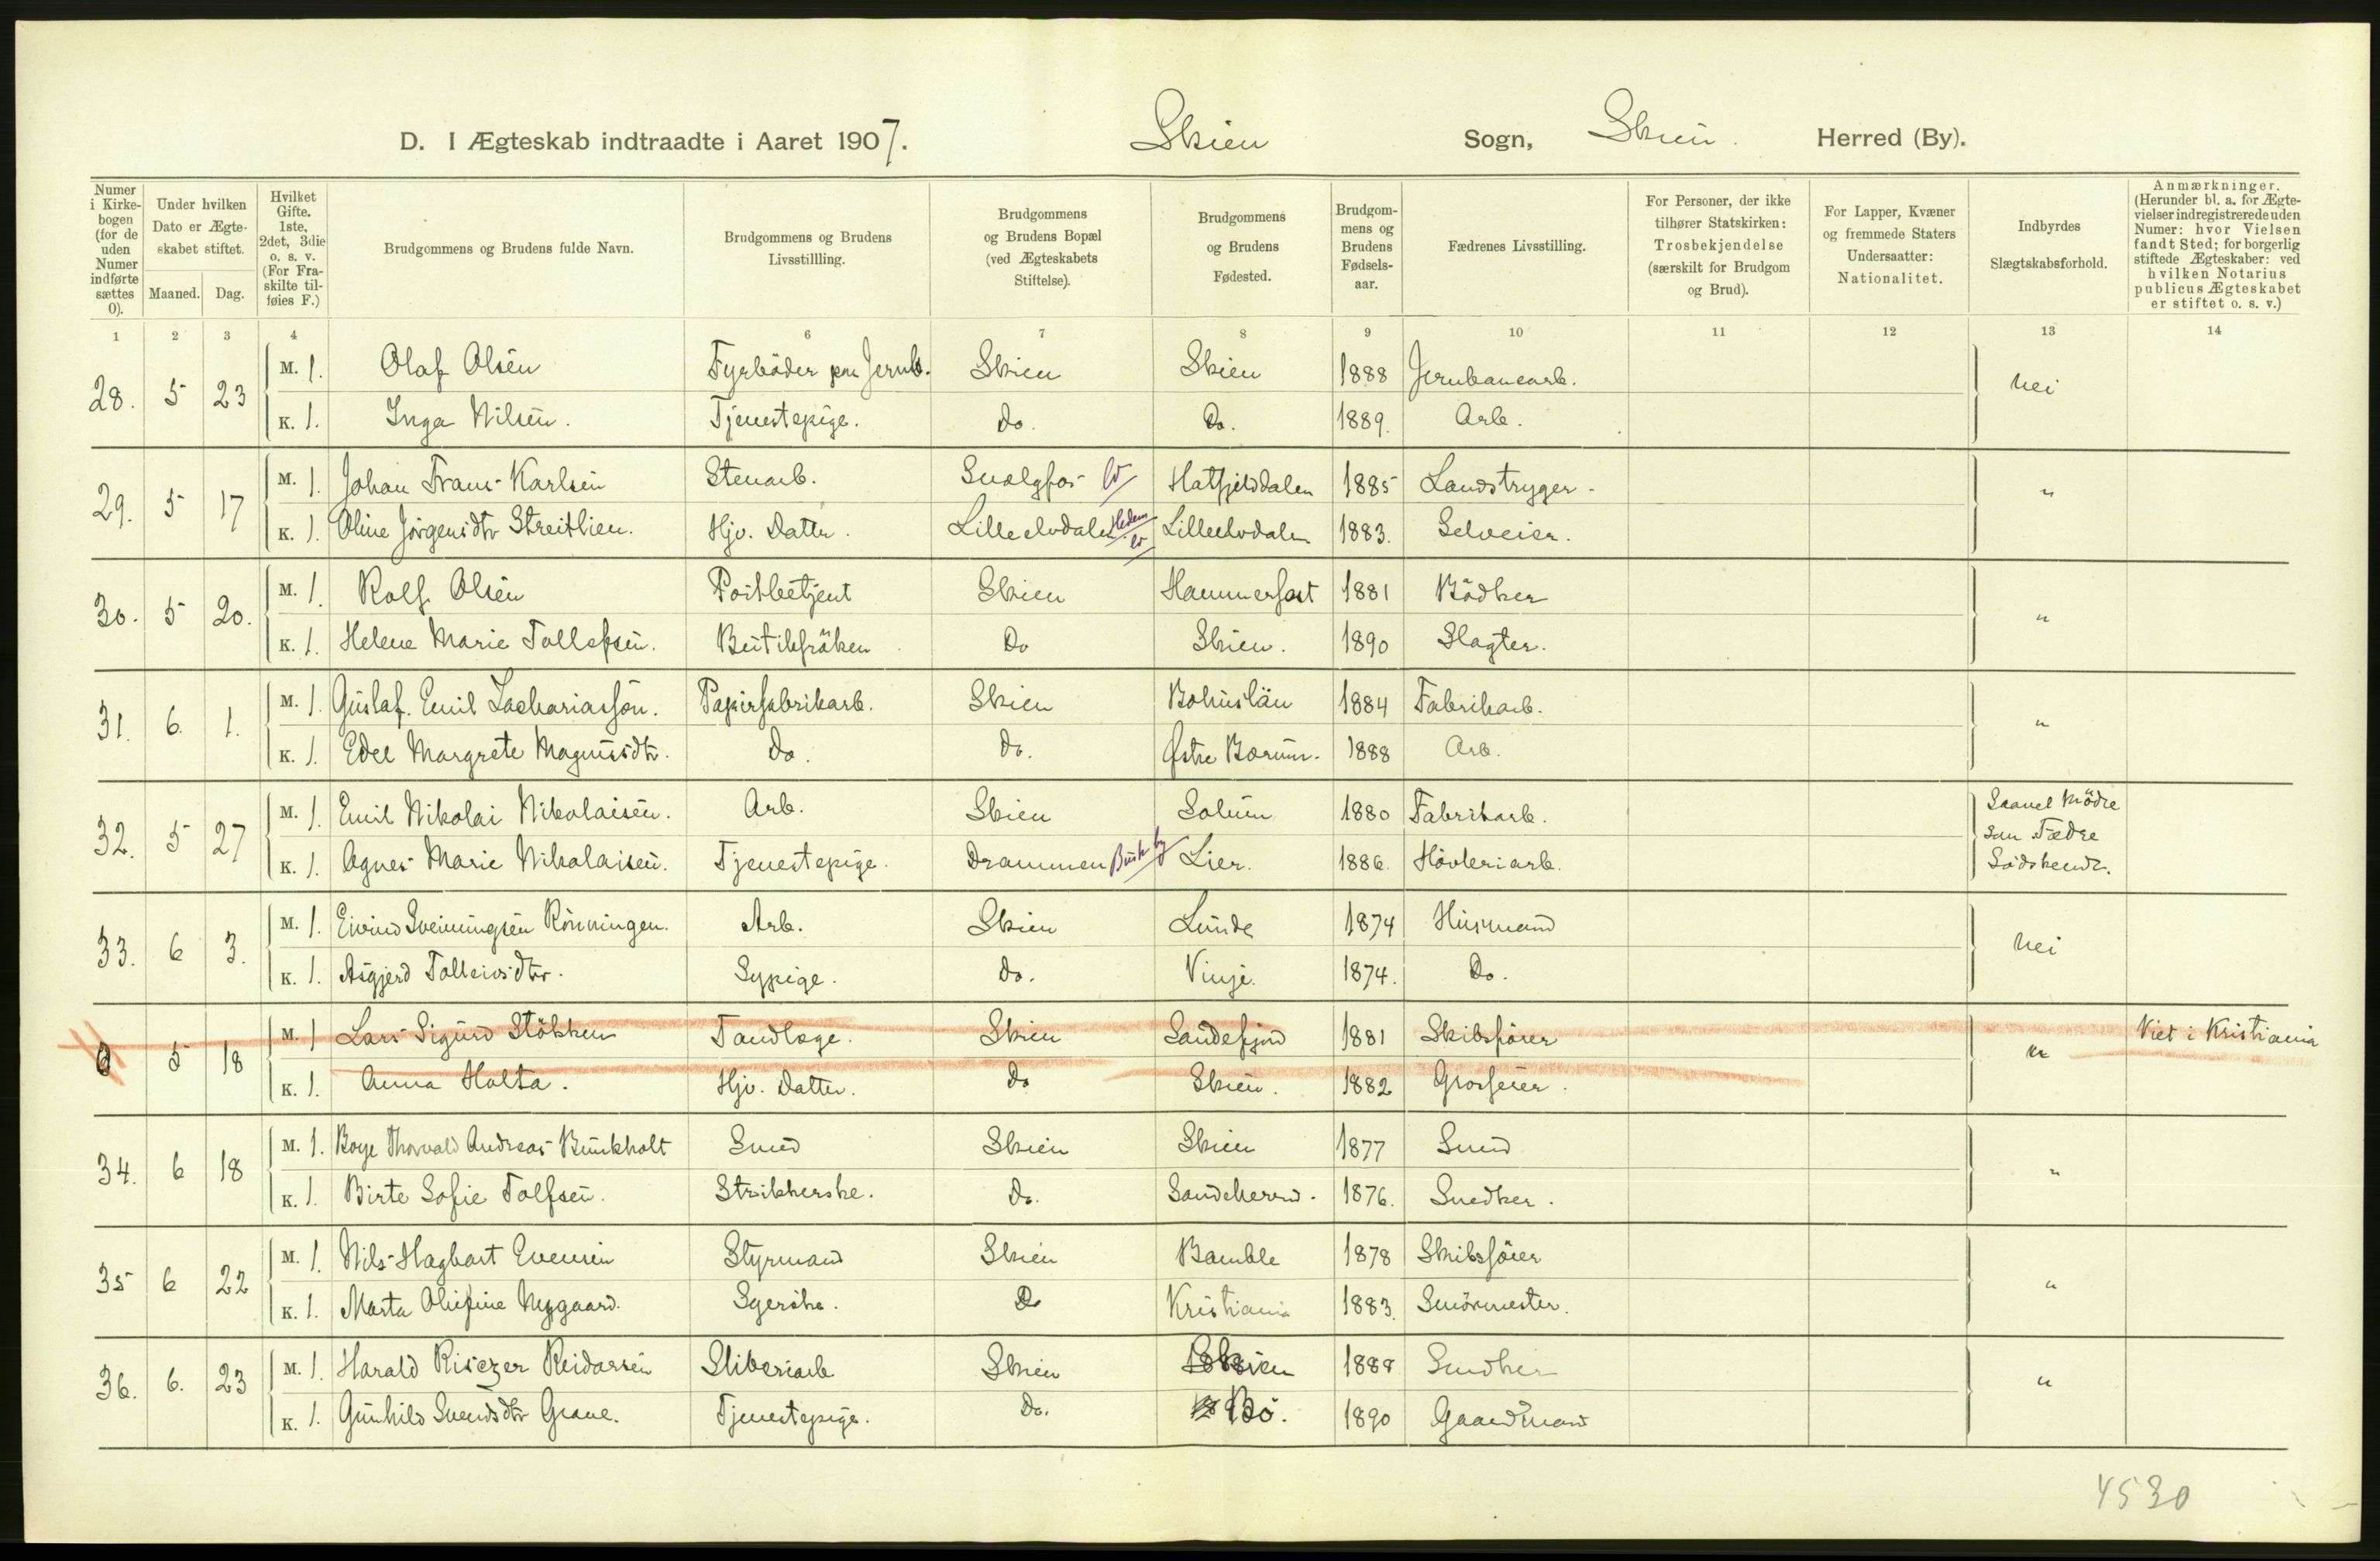 D. I Ægteskab indtraadte i Aaret 1907. Skien Sogn, Skien. Herred (By).
Numer i Kirkebogen (for de uden Numer indførte sættes 0).
Under hvilken Dato er Ægteskabet stiftet.
Maaned. Dag.
Hvilket Gifte. 1ste, 2det, 3die o. s. v. (For Fraskilte tilføies F.)
Brudgommens og Brudens fulde Navn.
Brudgommens og Brudens Livsstillling.
Brudgommens og Brudens Bopæl (ved Ægteskabets Stiftelse).
Brudgommens og Brudens Fødested.
Brudgommens og Brudens Fødselsaar.
Fædrenes Livsstilling.
For Personer, der ikke tilhører Statskirken: Trosbekjendelse (særskilt for Brudgom og Brud).
For Lapper, Kvæner og fremmede Staters Undersaatter: Nationalitet.
Indbyrdes Slægtskabsforhold.
Anmærkninger. (Herunder bl. a. for Ægtevielser indregistrerede uden Numer: hvor Vielsen fandt Sted; for borgerlig stiftede Ægteskaber: ved hvilken Notarius publicus Ægteskabet er stiftet o. s. v.)
1 2 3 4 6 7 8 9 10 11 12 13 14
28. 5 23 M. 1. Olaf Olsen Fyrbøder paa Jernb. Skien Skien 1888 Jernbanearb. nei
K. 1. Inga Nilsen. Tjenestepige. do. Do. 1889. Arb.
29. 5 17 M. 1. Johan Frans Karlsen Stenarb. Snalgfos ld Hatfjelddalen 1885 Landstryger. "
K. 1. Oline Jörgensdtr Streitlien. Hjv. Datter. Lilleelvdalen Hedem ld Lilleelvdalen 1883. Selveier.
30. 5 20. M. 1. Rolf Olsen Postbetjent Skien Hammerfest 1881 Bödker "
K. 1. Helene Marie Tollefsen. Butikfröken Do Skien. 1890 Slagter.
31. 6. 1. M. 1. Gustaf Emil Zachariasson. Papirfabrikarb. Skien Bohuslän 1884 Fabrikarb. "
K. 1. Edel Margrete Magnusdtr. Do. do. Østre Bærum. 1888 Arb.
32. 5 27 M. 1. Emil Nikolai Nikolaisen. Arb. Skien Solum 1880 Fabrikarb. Saavel Mödre som Fædre Södskende.
K. 1. Agnes Marie Nikolaisen. Tjenestepige. Drammen Busk by Lier. 1886. Hövleriarb.
33. 6 3. M. 1. Eivind Sveinungsen Rönningen. Arb. Skien Lunde 1874 Husmand nei
K. 1. Asgjerd Tolleivsdtr. Sypige. do. Vinje. 1874. Do.
0 5 18 M. 1 Lars Sigurd Stökken Tandlæge. Skien Sandefjord 1881 Skibsförer " Viet i Kristiania
K. 1. Anna Holta. Hjv. Datter. do Skien. 1882 Grosserer.
34. 6 18 M. 1. Boye Thorvald Andreas Bunkholt Smed Skien Skien 1877 Smed "
K. 1. Birte Sofie Tolfsen. Strikkerske. Do. Sandeherred. 1876. Snedker.
35 6 22 M. 1. Nils Hagbart Evensen Styrmand Skien Bamble 1878 Skibsförer "
K. 1. Marta Olufine Nygaard. Syerske. Do Kristiania 1883. Smörmester.
36. 6. 23 M. 1. Harald Reidarsen Sliberiarb Skien Skien 1888 Snedker "
K. 1. Gunhild Svendsdtr Grave. Tjenestepige. Do. Bö. 1890 Gaardmand
4530